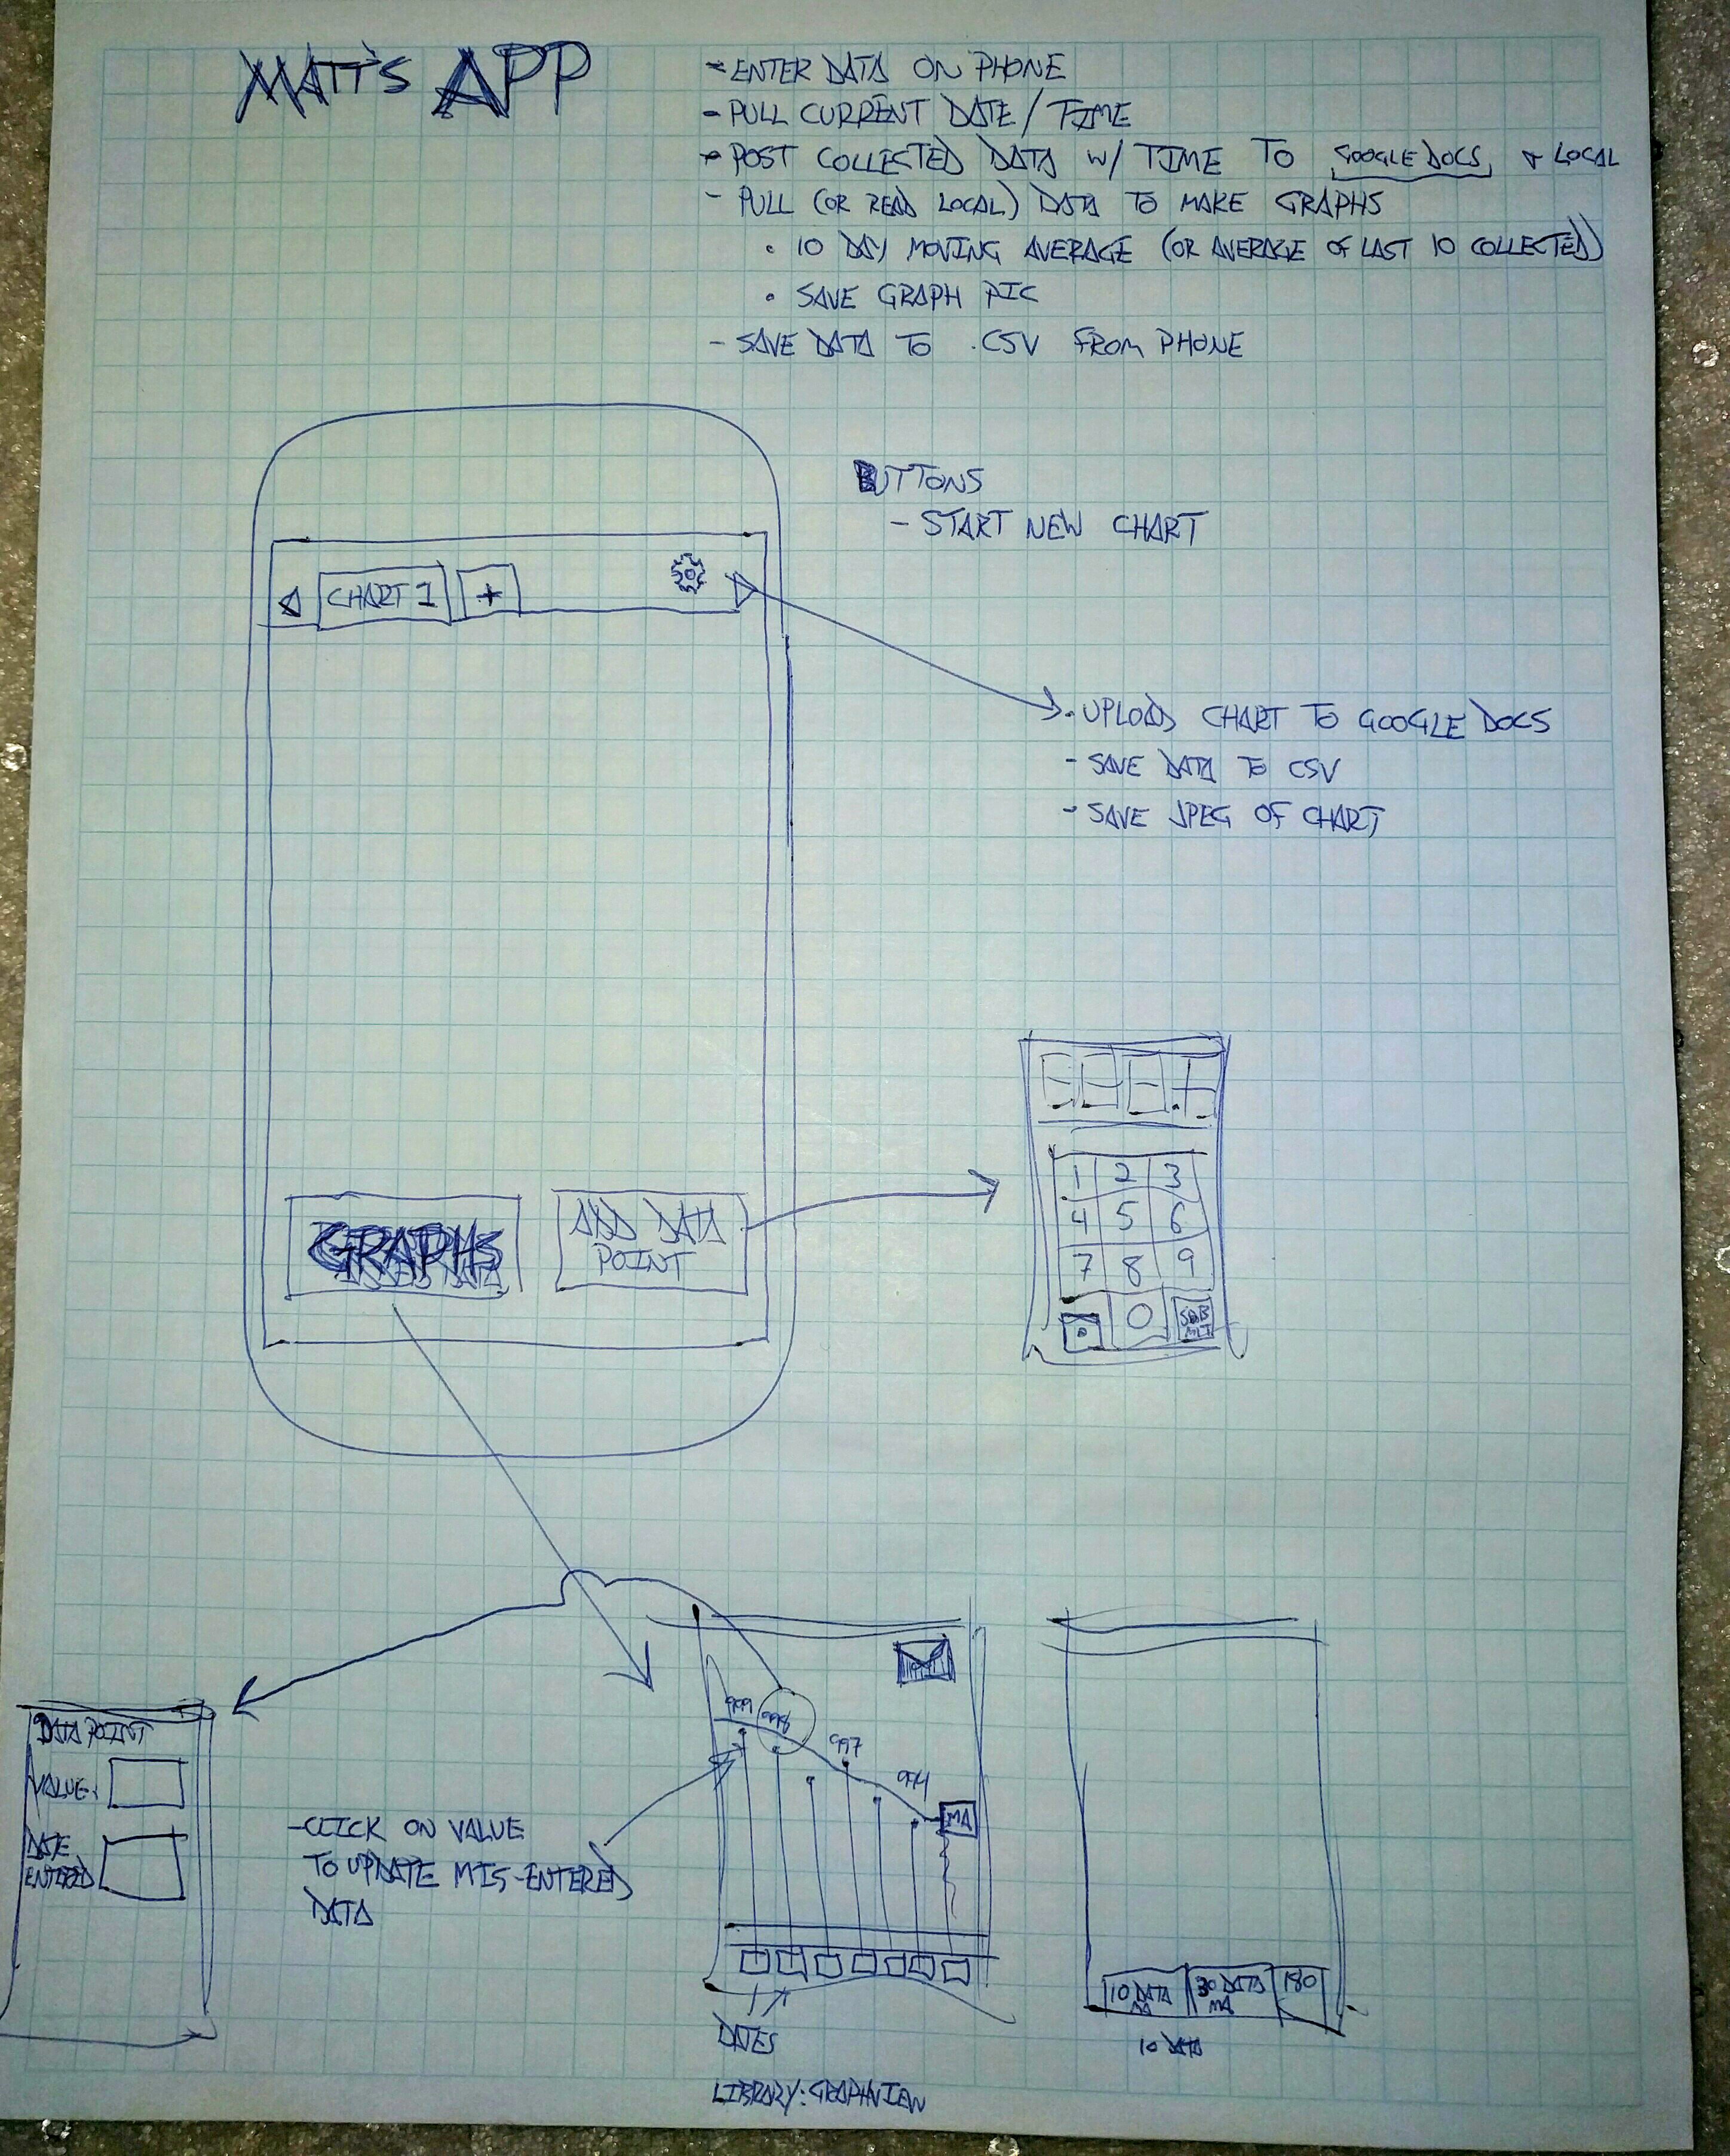 MATT'S APP
- ENTER DATA ON PHONE
- PULL CURRENT DATE / TIME
- POST COLLECTED DATA W/ TIME TO GOOGLE DOCS, & LOCAL
- PULL (OR READ LOCAL) DATA TO MAKE GRAPHS
• 10 DAY MOVING AVERAGE (OR AVERAGE OF LAST 10 COLLECTED)
• SAVE GRAPH PIC
- SAVE DATA TO .CSV FROM PHONE
BUTTONS
- START NEW CHART
CHART 1 +
- UPLOAD CHART TO GOOGLE DOCS
- SAVE DATA TO CSV
- SAVE JPEG OF CHART
1 2 3
4 5 6
7 8 9
. 0 SUB
MIT
GRAPHS
ADD DATA
POINT
DATA POINT
VALUE:
DATE
ENTERED
- CLICK ON VALUE
TO UPDATE MIS-ENTERED
DATA
999 998
997
994
MA
DATES
10 DATA
MA
30 DATA
MA
180
10 DATA
LIBRARY: GRAPHVIEW